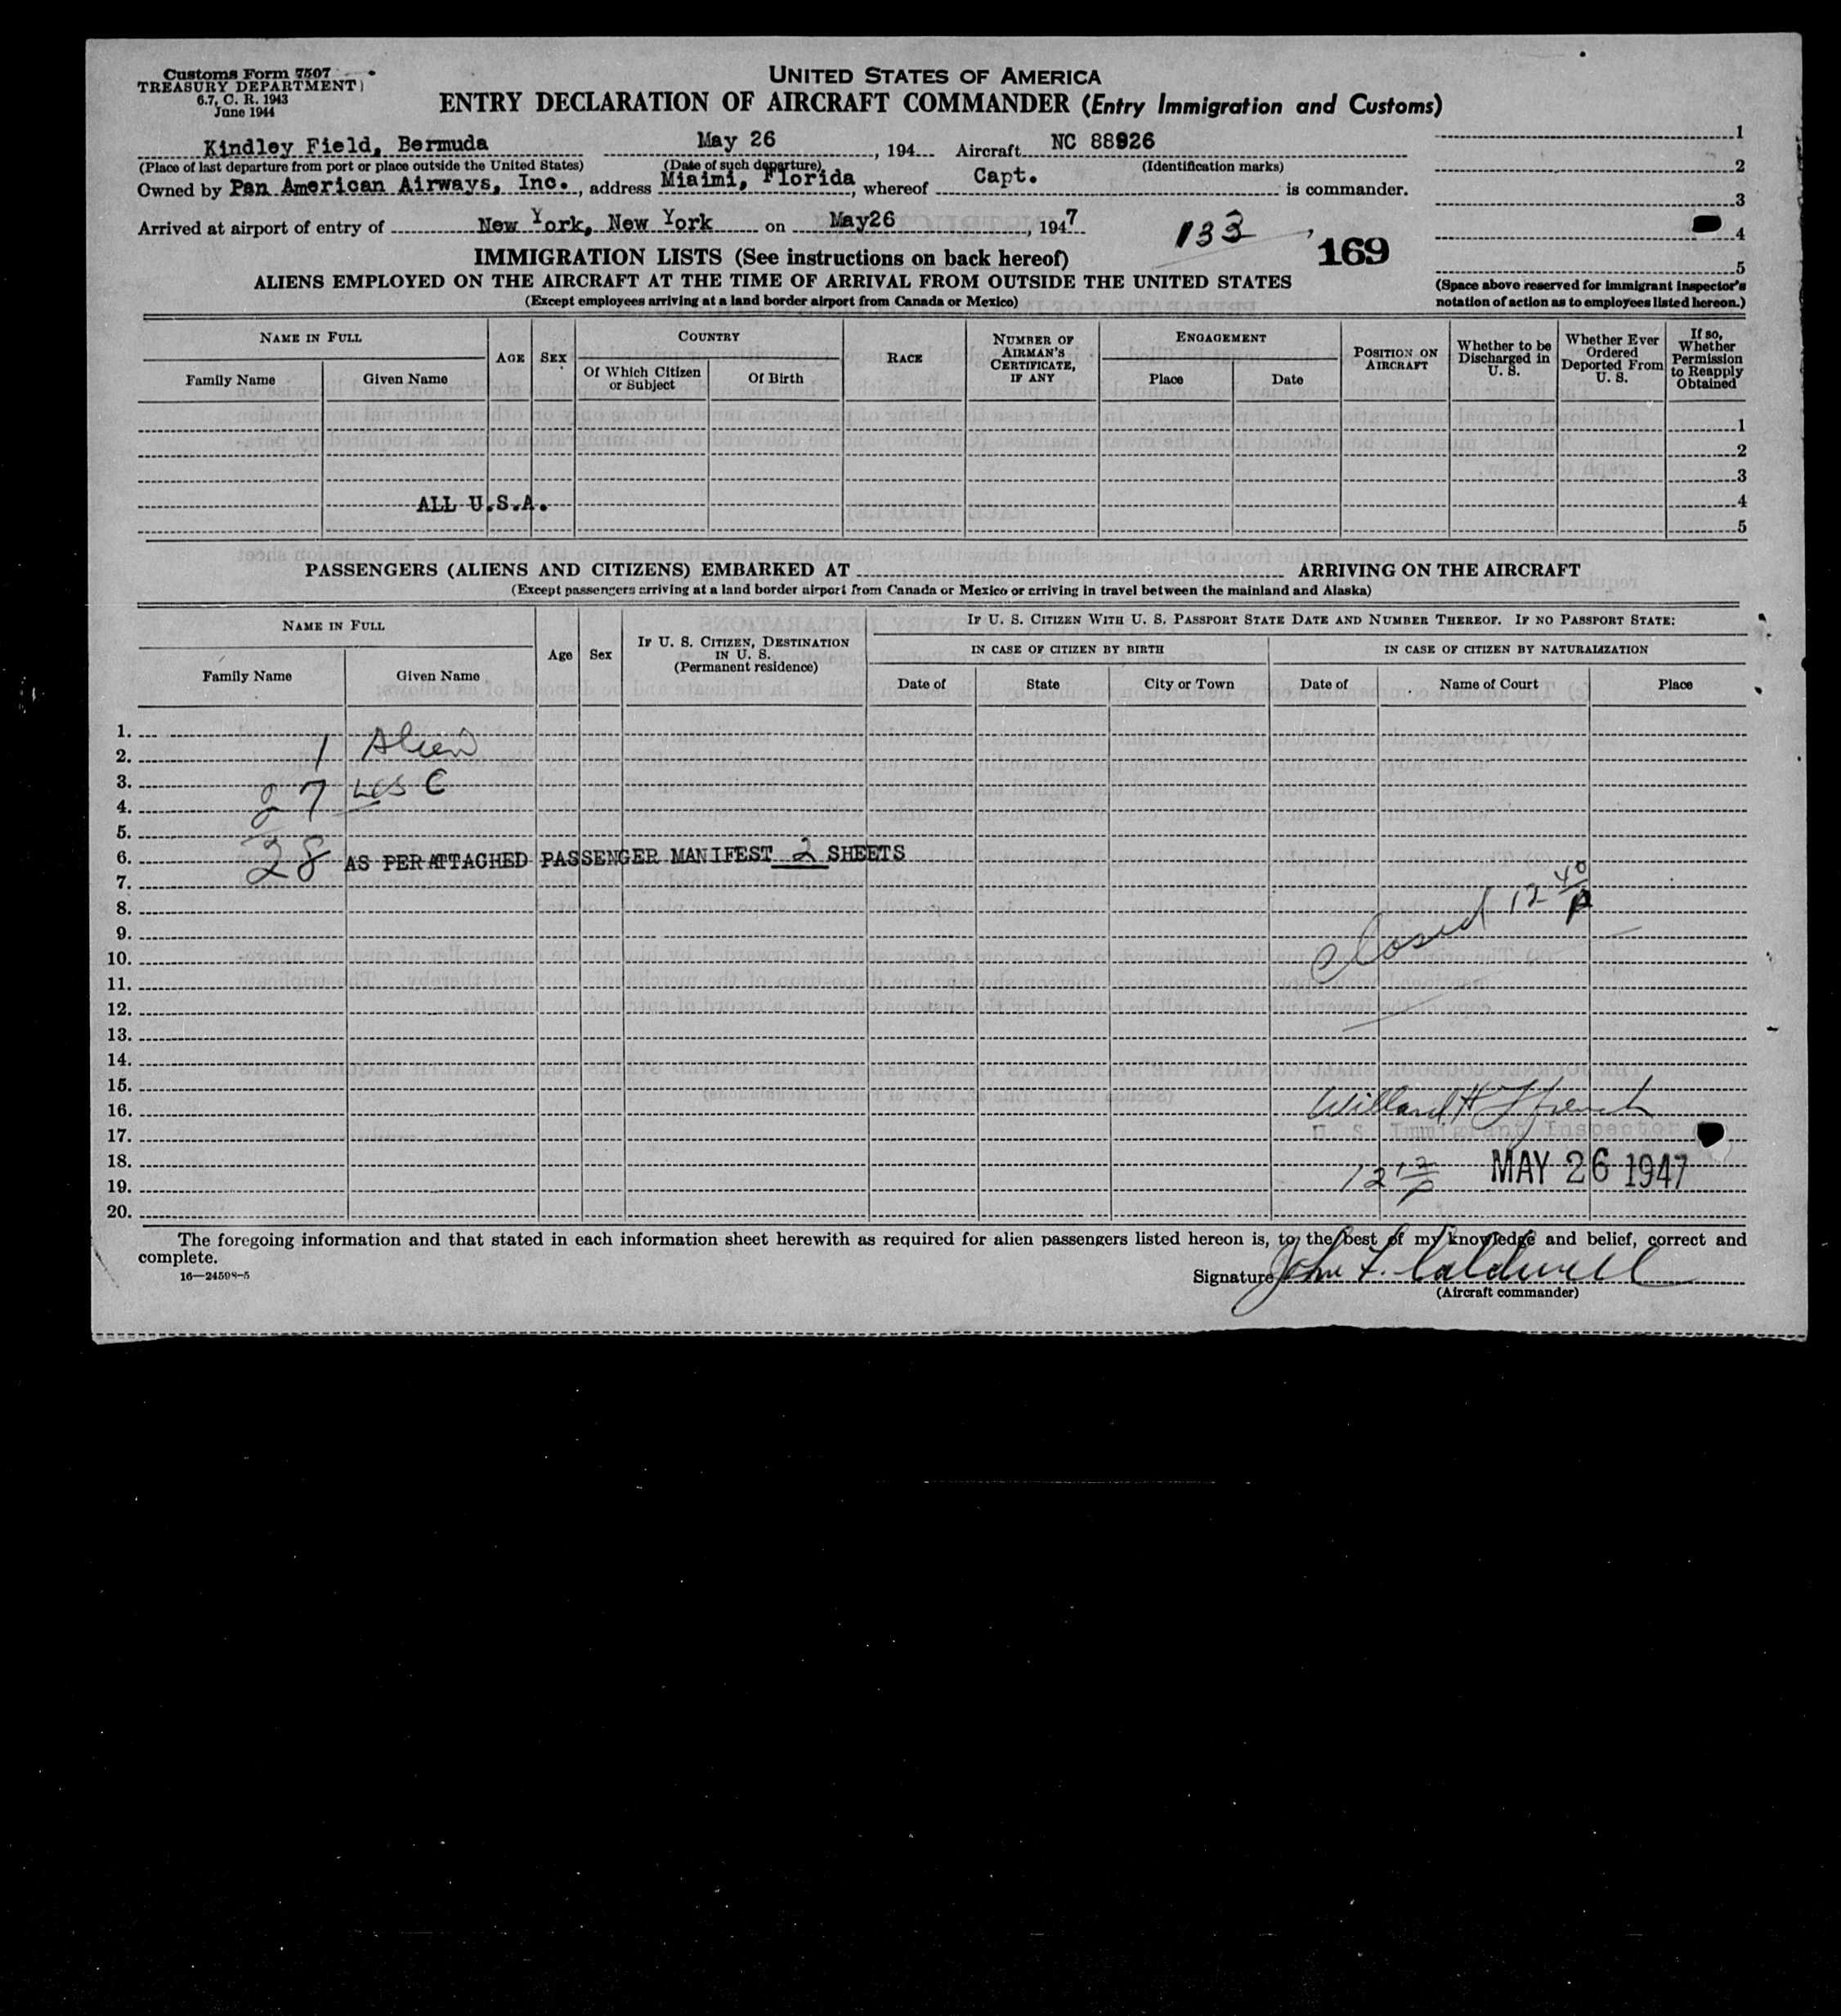 Customs Form 7507
TREASURY DEPARTMENT
6.7, C. R. 1943
June 1944
UNITED STATES OF AMERICA
ENTRY DECLARATION OF AIRCRAFT COMMANDER (Entry Immigration and Customs)
Kindley Field, Bermuda May 26, 194 Aircraft NC 88926
(Place of last departure from port or place outside the United States) (Date of such departure) (Identification marks)
Owned by Pan American Airways, Inc., address Miaimi, Florida, whereof Capt. is commander.
Arrived at airport of entry of New York, New York on May26, 1947
133
169
1
2
3
4
5
(Space above reserved for immigrant inspector's notation of action as to employees listed hereon.)
IMMIGRATION LISTS (See instructions on back hereof)
ALIENS EMPLOYED ON THE AIRCRAFT AT THE TIME OF ARRIVAL FROM OUTSIDE THE UNITED STATES
(Except employees arriving at a land border airport from Canada or Mexico)
NAME IN FULL
Family Name
Given Name
AGE
SEX
COUNTRY
Of Which Citizen or Subject
Of Birth
RACE
NUMBER OF AIRMAN'S CERTIFICATE, IF ANY
ENGAGEMENT
Place
Date
POSITION ON AIRCRAFT
Whether to be Discharged in U. S.
Whether Ever Ordered Deported From U. S.
If so, Whether Permission to Reapply Obtained
1
2
3
ALL U.S.A. 4
5
PASSENGERS (ALIENS AND CITIZENS) EMBARKED AT ARRIVING ON THE AIRCRAFT
(Except passengers arriving at a land border airport from Canada or Mexico or arriving in travel between the mainland and Alaska)
NAME IN FULL
Family Name
Given Name
Age
Sex
IF U. S. CITIZEN, DESTINATION IN U. S. (Permanent residence)
IF U. S. CITIZEN WITH U. S. PASSPORT STATE DATE AND NUMBER THEREOF. IF NO PASSPORT STATE:
IN CASE OF CITIZEN BY BIRTH
IN CASE OF CITIZEN BY NATURALIZATION
Date of
State
City or Town
Date of
Name of Court
Place
1.
2. 1 Alien
3.
4. 27 USC
5.
6. 28 AS PER ATTACHED PASSENGER MANIFEST 2 SHEETS
7.
8.
9.
10. Closed 12 40 P
11.
12.
13.
14.
15.
16. Willard H French
17. U. S. Immigrant Inspector
18. MAY 26 1947
19.
20.
The foregoing information and that stated in each information sheet herewith as required for alien passengers listed hereon is, to the best of my knowledge and belief, correct and
complete.
16—24598-5
Signature John F. Caldwell
(Aircraft commander)